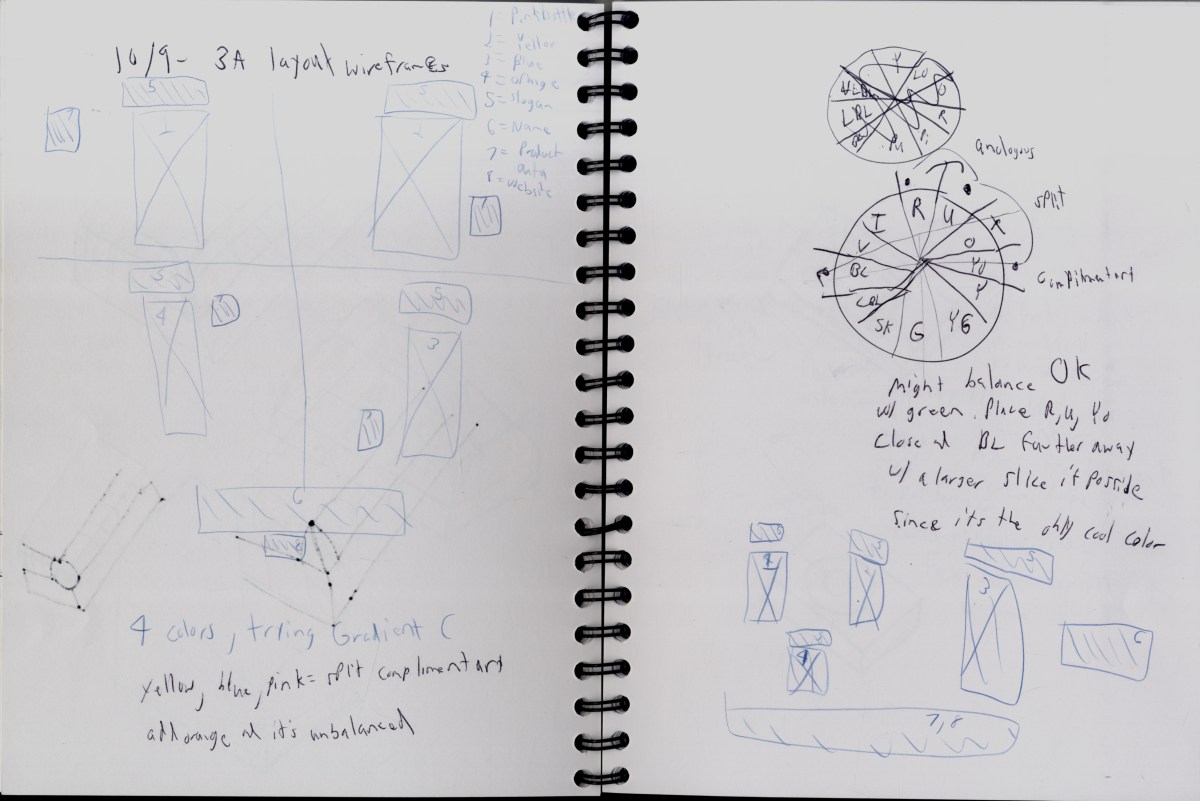 10/9- 3A layout wireframes
1= Pink bottle
2= Yellow
3= blue
4= orange
5= slogan
6= Name
7= Product
data
8= website
5
1
5
2
7
7
5
4
7
5
3
7
6
8
4 colors, trying Gradient C
Yellow, blue, pink= split complimentary
add orange & it's unbalanced
Y
LO
O
R
Pi
PU
LBL
analogous
split
complimentary
R
U
X
O
YO
Y
YG
G
SK
LBL
BL
V
I
OK
Might balance
w/ green. Place R, U, YO
Close & BL further away
w/ a larger slice if posside
Since it's the only cool color
5
1
5
2
5
3
6
5
4
7,8